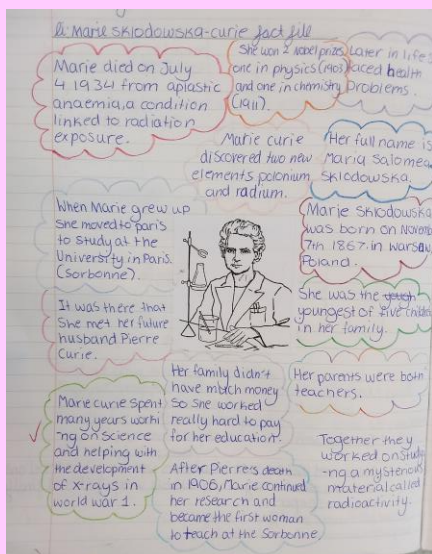 li: Marie Sklodowska-curie fact file
Marie died on July
4 1934 from aplastic
anaemia, a condition
linked to radiation
exposure.
She won 2 nobel prizes
one in physics (1903)
and one in chemistry
(1911).
Later in life
faced health
problems.
Marie curie
discovered two new
elements polonium
and radium.
Her full name is
Maria Salomea
Sklodowska.
When Marie grew up
She moved to paris
to study at the
University in Paris.
(Sorbonne).
Marie Sklodowska
was born on Novem
7th 1867 in Warsaw
Poland.
It was there that
She met her future
husband Pierre
Curie.
She was the
youngest of five child
in her family.
Her family didn't
have much money
so she worked
really hard to pay
for her education.
Her parents were both
teachers.
Marie curie spent
many years worki
-ng on science
and helping with
the development
of x-rays in
world war 1.
After Pierre's death
in 1906, Marie continued
her research and
became the first woman
to teach at the Sorbonne.
Together they
worked on study
-ng a mysterious
material called
radioactivity.